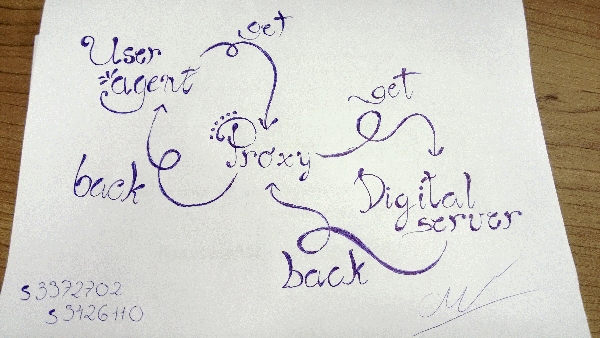 get
User
agent
get
Proxy
back
Digital
server
back
s3372702
s3126110